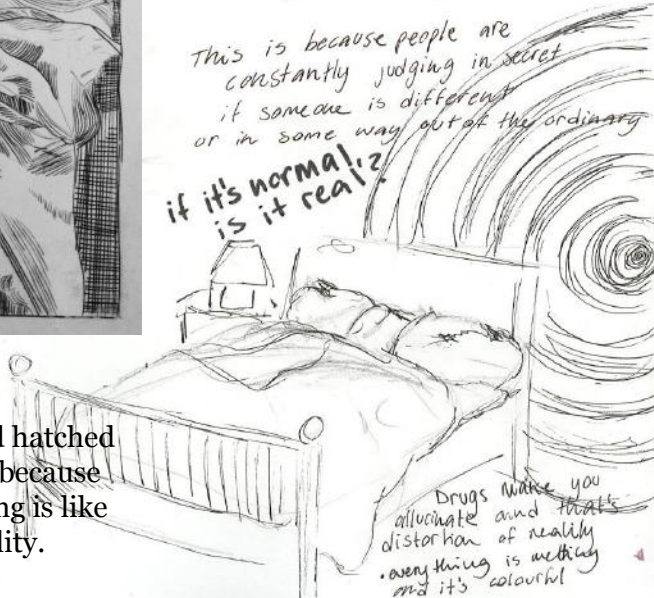 This is because people are
constantly judging in secret
if someone is different
or in some way out of the ordinary
if it's normal,
is it real?
hatched
because
ng is like
lity.
Drugs make you
allucinate and that's
distortion of reality
• everything is melting
and it's colourful